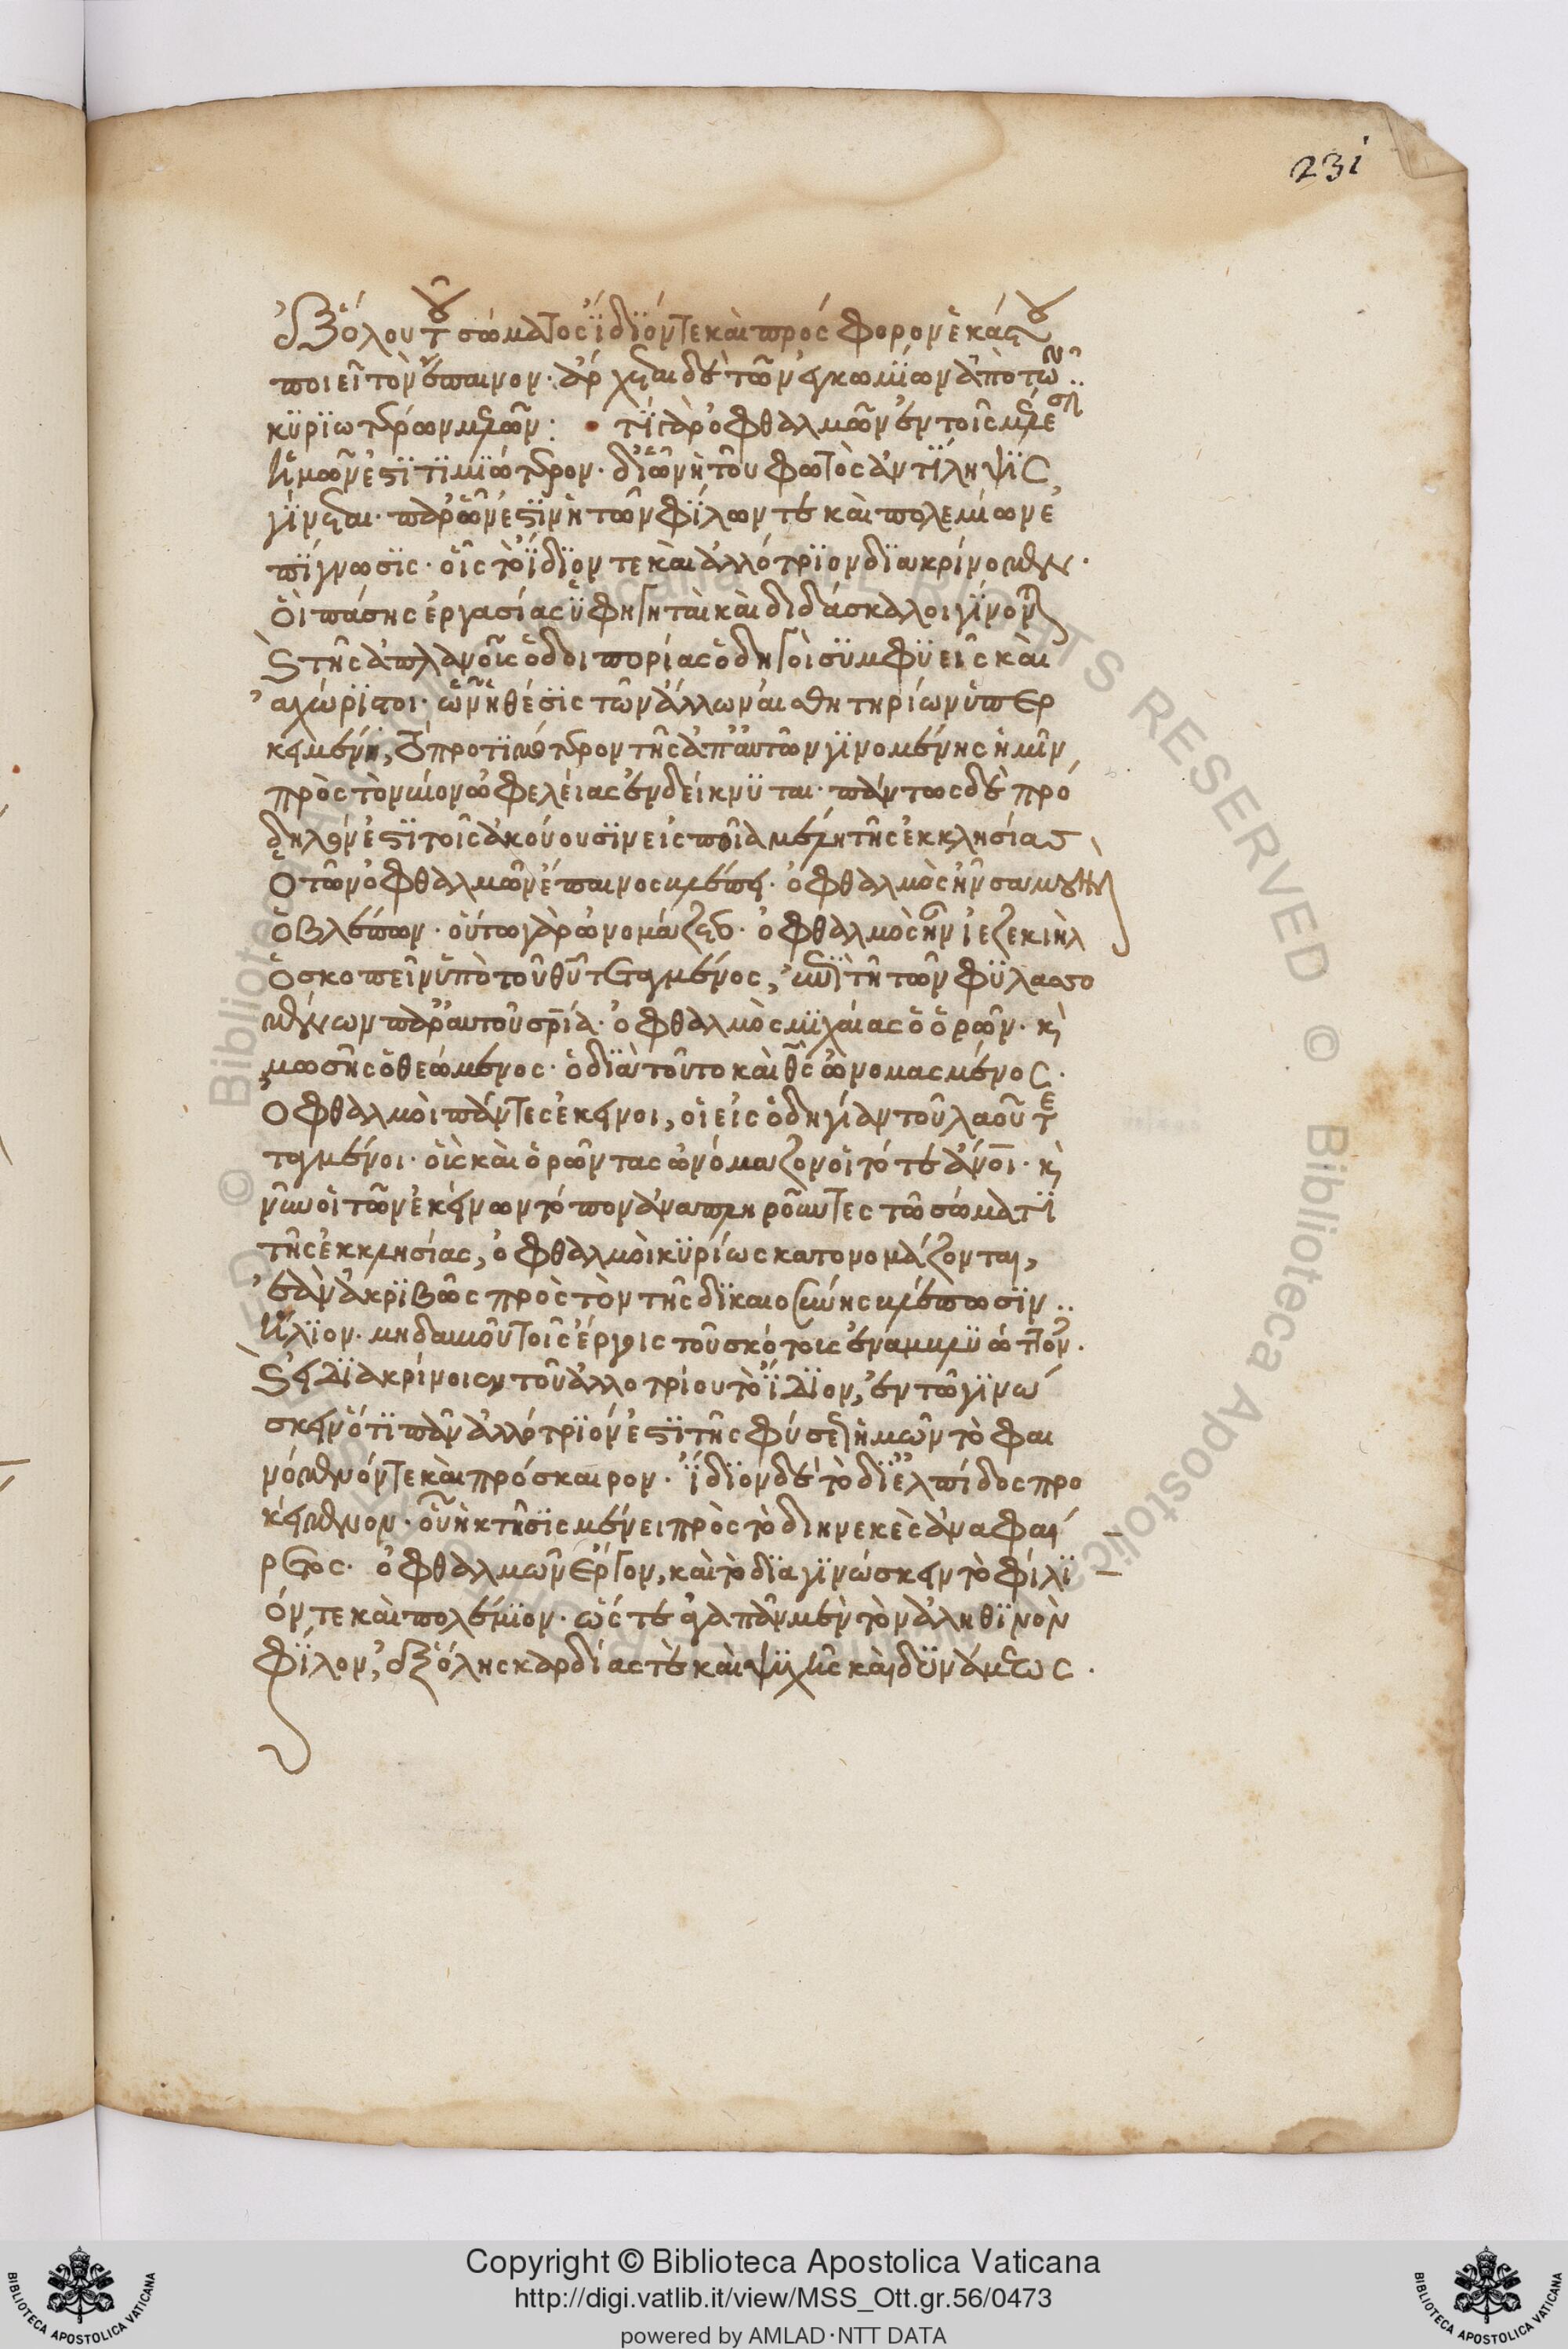 231
ἐξ ὅλου τοῦ σώματος ἴδιόν τε καὶ πρόσφορον ἑκάστου
ποιεῖ τὸν ἔπαινον· ἄρχεται δὲ τῶν ἐγκωμίων ἀπὸ τῶν
κυριωτέρων μελῶν: τί γὰρ ὀφθαλμῶν ἐν τοῖς μέλεσιν
ἡμῶν ἐστι τιμιώτερον· δι' ὧν ἡ τοῦ φωτὸς ἀντίληψις
γίνεται· παρ' ὧν ἐστιν ἡ τῶν φίλων τε καὶ πολεμίων ἐ
πίγνωσις· οἷς τὸ ἴδιόν τε καὶ ἀλλότριον διακρίνομεν·
οἱ πάσης ἐργασίας ὑφηγηταὶ καὶ διδάσκαλοι γίνονται
τῆς ἀπλανοῦς ὁδοιπορίας ὁδηγοὶ συμφυεῖς καὶ
ἀχώριστοι· ὧν ἡ θέσις τῶν ἄλλων αἰσθητηρίων ὑπερ
κειμένη, τὸ προτιμότερον τῆς ἀπ' αὐτῶν γινομένης ἡμῖν
πρὸς τὸν βίον ὠφελείας ἐνδείκνυται· πάντως δὲ πρό
δηλόν ἐστι τοῖς ἀκούουσιν εἰς ποῖα μέλη τῆς ἐκκλησίας
ὁ τῶν ὀφθαλμῶν ἔπαινος βλέπει· ὀφθαλμὸς ἦν σαμουὴλ
ὁ βλέπων· οὕτω γὰρ ὠνομάζετο· ὀφθαλμὸς ἦν ἰεζεκιὴλ
ὁ σκοπεῖν ὑπὸ τοῦ θυ τεταγμένος, ἐπὶ τῇ τῶν φυλασσο
μένων παρ' αὐτοῦ σρία· ὀφθαλμὸς μιχαίας ὁ ὁρῶν· κὶ
μωσῆς ὁ θεώμενος· ὁ διὰ τοῦτο καὶ θς ὠνομασμένος·
ὀφθαλμοὶ πάντες ἐκεῖνοι, οἱ εἰς ὁδηγίαν τοῦ λαοῦ τε
ταγμένοι· οἷς καὶ ὁρῶντας ὠνόμαζον οἱ τότε ἄνοι· κὶ
νῦν οἱ τῶν ἐκείνων τόπον ἀναπληροῦντες τῷ σώματι
τῆς ἐκκλησίας, ὀφθαλμοὶ κυρίως κατονομάζονται,
ἐὰν ἀκριβῶς πρὸς τὸν τῆς δικαιοσύνης βλέπωσιν
ἥλιον· μηδαμοῦ τοῖς ἔργοις τοῦ σκότους ἐναμβλυώττον·
εἰ διακρίνοιεν τοῦ ἀλλοτρίου τὸ ἴδιον, ἐν τῷ γινώ
σκειν ὅτι πᾶν ἀλλότριόν ἐστι τῆς φύσεως ἡμῶν τὸ φαι
νόμενόν τε καὶ πρόσκαιρον· ἴδιον δὲ τὸ δι' ἐλπίδος προ
κείμενον· οὗ ἡ κτῆσις μένει πρὸς τὸ διηνεκὲς ἀναφαί
ρετος· ὀφθαλμῶν ἔργον, καὶ τὸ διαγινώσκειν τὸ φίλι
όν τε καὶ πολέμιον· ὥστε ἀγαπᾶν μὲν τὸν ἀληθινὸν
φίλον, ἐξ ὅλης καρδίας τὲ καὶ ψυχῆς καὶ δυνάμεως·
© Biblioteca Apostolica Vaticana
ALL RIGHTS RESERVED
Copyright © Biblioteca Apostolica Vaticana
http://digi.vatlib.it/view/MSS_Ott.gr.56/0473
powered by AMLAD·NTT DATA
BIBLIOTECA APOSTOLICA VATICANA
BIBLIOTECA APOSTOLICA VATICANA